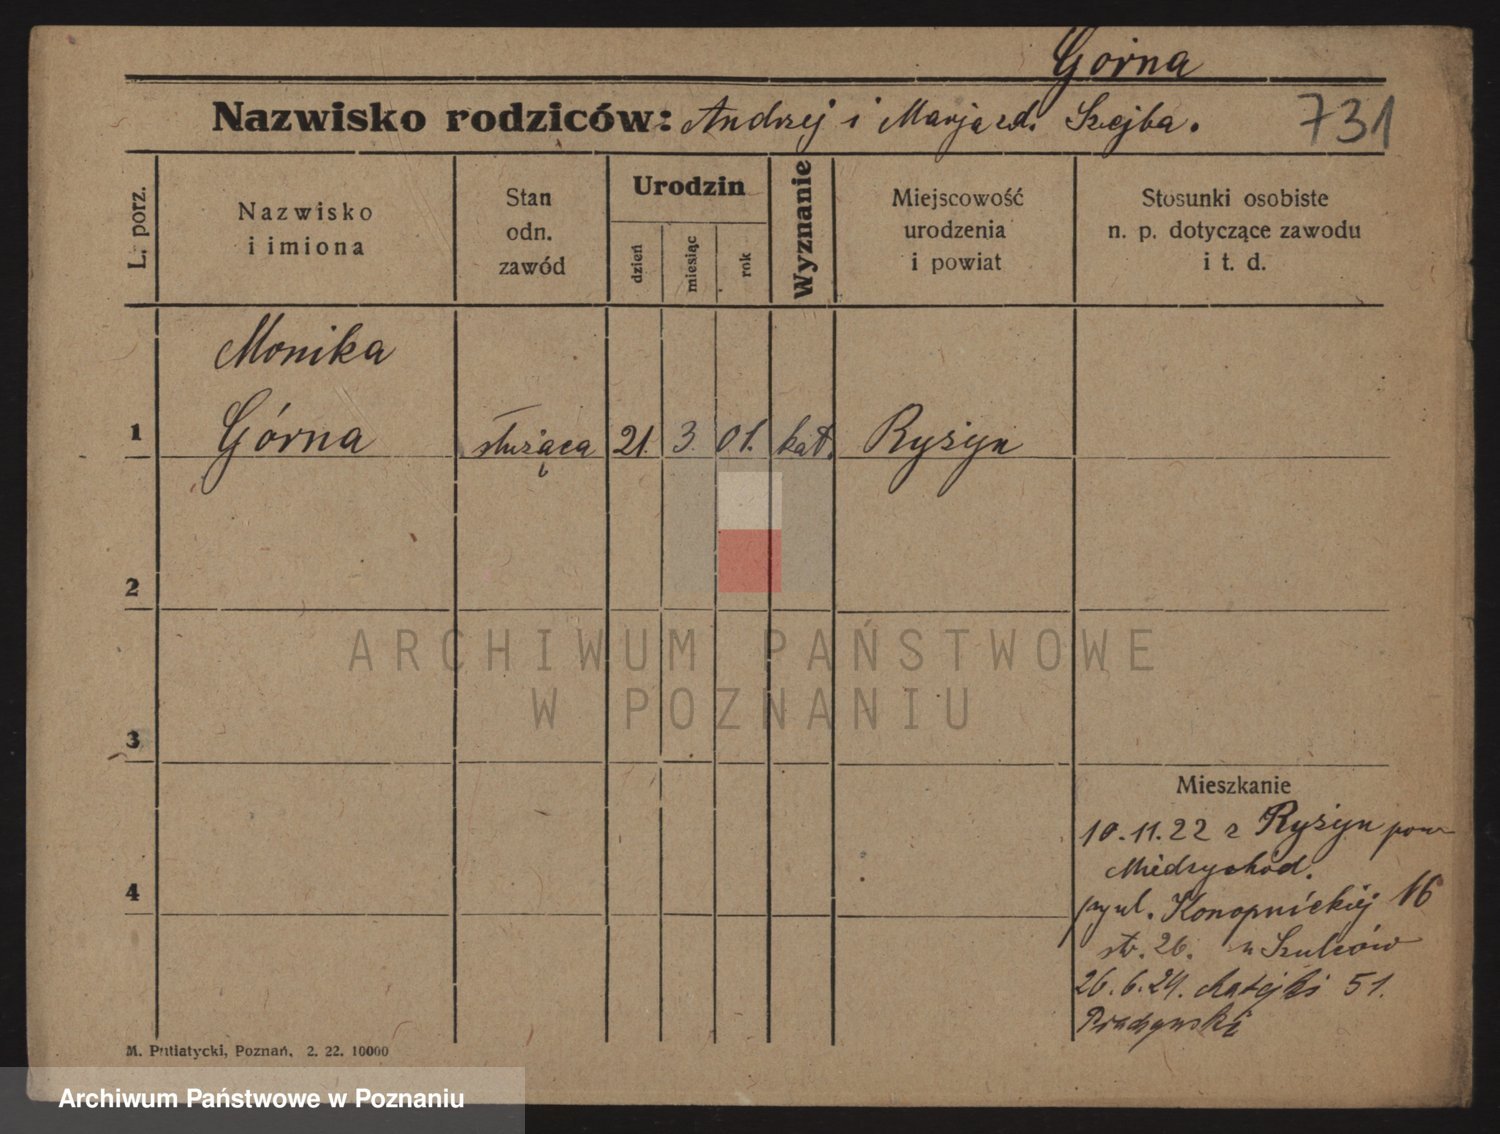 Górna
Nazwisko rodziców: Andrzej i Marja zd. Szejba. 731
L. porz.
Nazwisko
i imiona
Stan
odn.
zawód
Urodzin
dzień
miesiąc
rok
Wyznanie
Miejscowość
urodzenia
i powiat
Stosunki osobiste
n. p. dotyczące zawodu
i t. d.
Monika
1 Górna służąca 21. 3. 01. kat. Ryżyn
2
ARCHIWUM PAŃSTWOWE
W POZNANIU
3
Mieszkanie
10.11.22 z Ryżyn pow
Międzychód.
4
ul. Konopnickiej 16
26. u Szulców
26.6.24. Matejki 51.
M. Putiatycki, Poznań, 2. 22. 10000
Archiwum Państwowe w Poznaniu